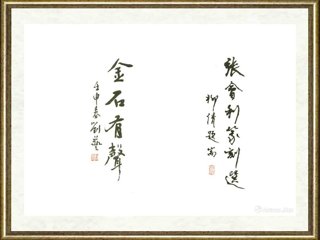 張會利篆刻選
柳倩題耑
金石有聲
壬申春 劉藝